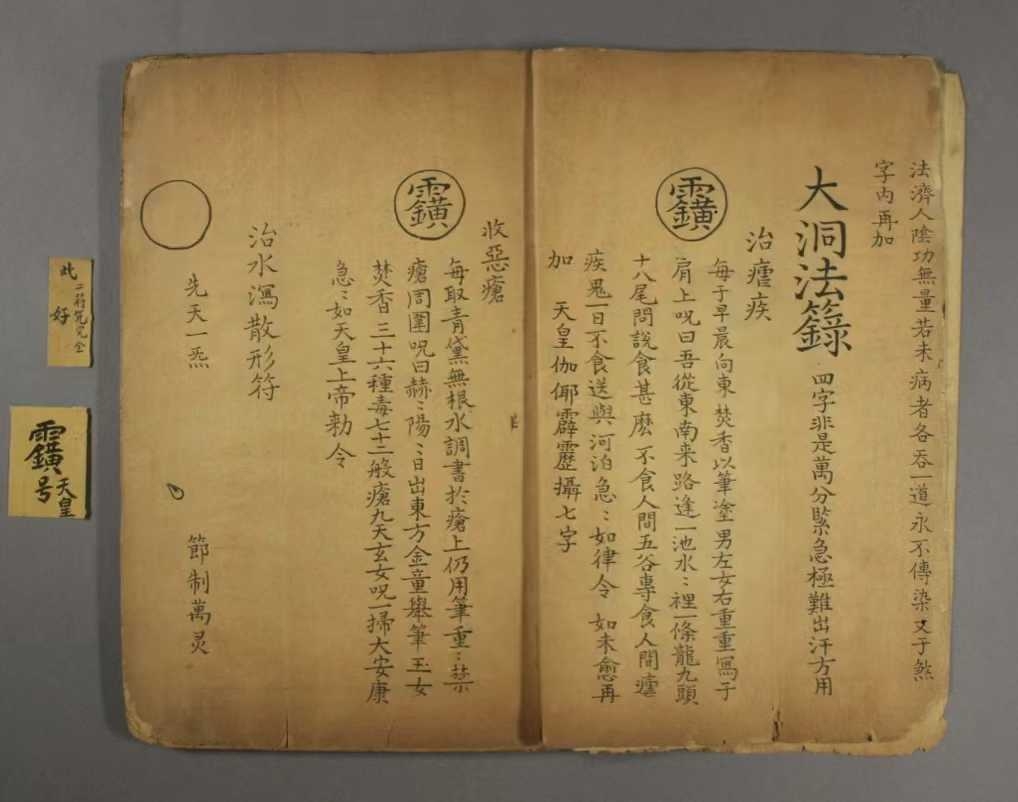 法濟人陰功無量若未病者各吞一道永不傳染又于煞
字內再加
大洞法籙 四字非是萬分緊急極難出汗方用
治瘧疾
每于早晨向東焚香以筆塗男左女右重重寫于
肩上呪曰吾從東南来路逢一池水〻裡一條龍九頭
十八尾問說食甚麽不食人間五谷專食人間瘧
疾鬼一日不食送與河泊急〻如律令 如未愈再
加 天皇伽倻霹靂攝七字
收惡瘡
每取青黛無根水調書於瘡上仍用筆重〻禁
瘡周圍呪曰赫〻陽〻日出東方金童舉筆玉女
焚香三十六種毒七十二般瘡九天玄女呪一掃大安康
急〻如天皇上帝勅令
治水瀉散形符
先天一炁 節制萬灵
此二符咒完全
好
天皇
号